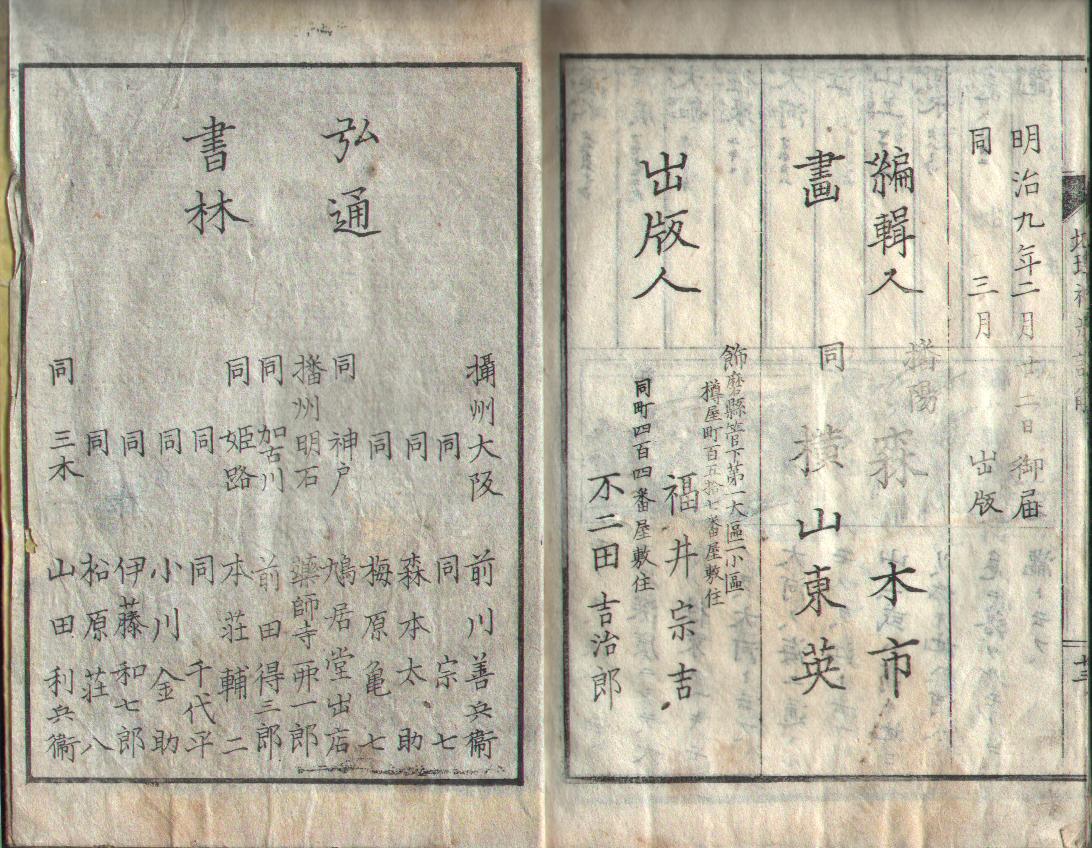 明治九年二月廿二日御届
同三月出版
編輯人 播陽 森木市
畫 同 横山東英
出版人
飾磨縣管下第一大區一小區
樽屋町百五拾七番屋敷住
福井宗吉
同町四百四番屋敷住
不二田吉治郎
弘通
書林
攝州大阪 前川善兵衞
同 同宗七
同 森本太助
同 梅原亀七
同神戸 鳩居堂出店
播州明石 藥師寺弥一郎
同加古川 前田得三郎
同姫路 本荘輔二
同 同千代平
同 小川金助
同 伊藤和七郎
同 松原荘八
同三木 山田利兵衞